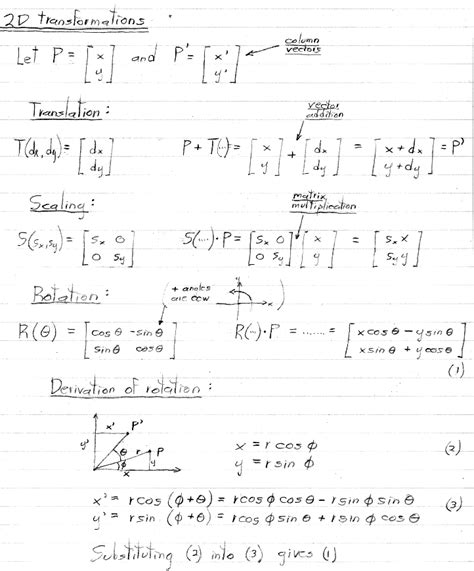 2D transformations
Let P = [x y] and P' = [x' y'] column vectors
Translation:
vector addition
T(dx, dy) = [dx dy] P + T(..) = [x y] + [dx dy] = [x + dx y + dy] = P'
Scaling:
matrix multiplication
S(sx, sy) = [sx 0 0 sy] S(...)·P = [sx 0 0 sy] [x y] = [sx x sy y]
Rotation: (+ angles are ccw y x)
R(θ) = [cos θ -sin θ sin θ cos θ] R(..)·P = ...... = [x cos θ - y sin θ x sin θ + y cos θ]
(1)
Derivation of rotation:
x' P'
y' θ r P
φ y
x
x = r cos φ (2)
y = r sin φ
x' = r cos (φ + θ) = r cos φ cos θ - r sin φ sin θ (3)
y' = r sin (φ + θ) = r cos φ sin θ + r sin φ cos θ
Substituting (2) into (3) gives (1)